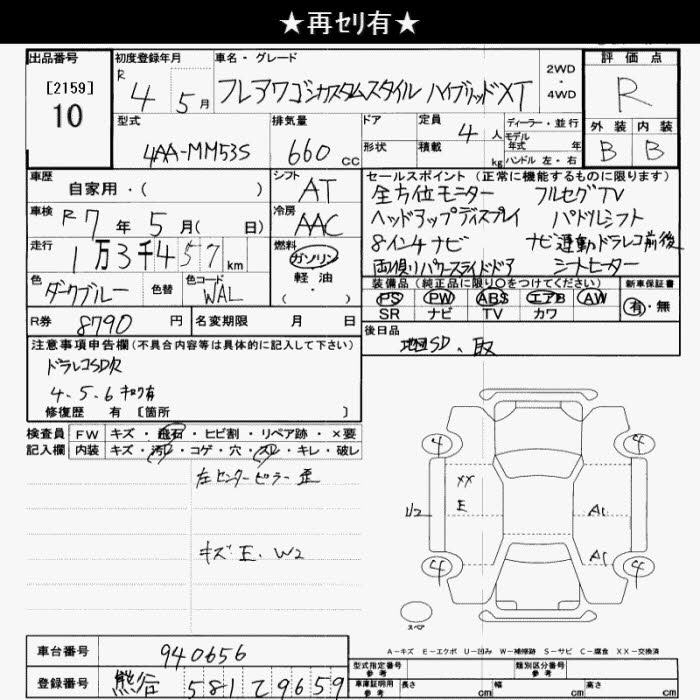 ★再ｾﾘ有★
出品番号 初度登録年月 車名・グレード 評価点
[2159] R 4年 5月 フレアワゴンカスタムスタイル ハイブリッドXT 2WD・4WD R
10 型式 排気量 ドア 定員 4人 ディーラー・並行 外装 内装
4AA-MM53S 660cc 形状 積載 kg モデル年式 年 ハンドル 左・右 B B
車歴 自家用・( ) シフト AT セールスポイント (正常に機能するものに限ります)
全方位モニター フルセグTV
車検 R7年5月( 日) 冷房 AAC ヘッドアップディスプレイ パドルシフト
走行 1万3千457km 燃料 ガソリン 8インチナビ ナビ連動ドラレコ前後
軽油 ・( ) 両側パワースライドドア シートヒーター
色 ダークブルー 色替 色コード WAL 装備品 (純正品に限り○をつけてください) 新車保証書
PS PW ABS エアB AW 有・無
R券 8790円 名変期限 月 日 SR ナビ TV カワ
注意事項申告欄 (不具合内容等は具体的に記入して下さい) 後日品
ドラレコSD欠 地図SD、取
4.5.6キロク有
修復歴 有 [箇所 ]
検査員 FW キズ・飛石・ヒビ割・リペア跡・×要
記入欄 内装 キズ・汚レ・コゲ・穴・スレ・キレ・破レ
左センターピラー歪
キズ E. W2
4 4
XX
E
1/2 A1
A1
4 4
スペア
A－キズ E－エクボ U－凹み W－補修跡 S－サビ C－腐食 XX－交換済
車台番号 940656 型式指定番号 参考 類別区分番号 参考
登録番号 熊谷 581 て 9659 車庫証明用 参考 長さ cm 幅 cm 高さ cm